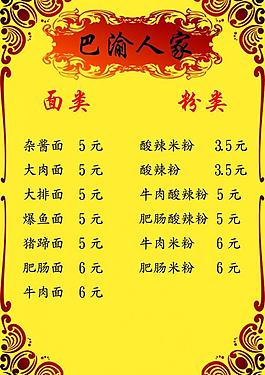 巴渝人家
面类 粉类
杂酱面 5元 酸辣米粉 3.5元
大肉面 5元 酸辣粉 3.5元
大排面 5元 牛肉酸辣粉 5元
爆鱼面 5元 肥肠酸辣粉 5元
猪蹄面 5元 牛肉米粉 6元
肥肠面 6元 肥肠米粉 6元
牛肉面 6元